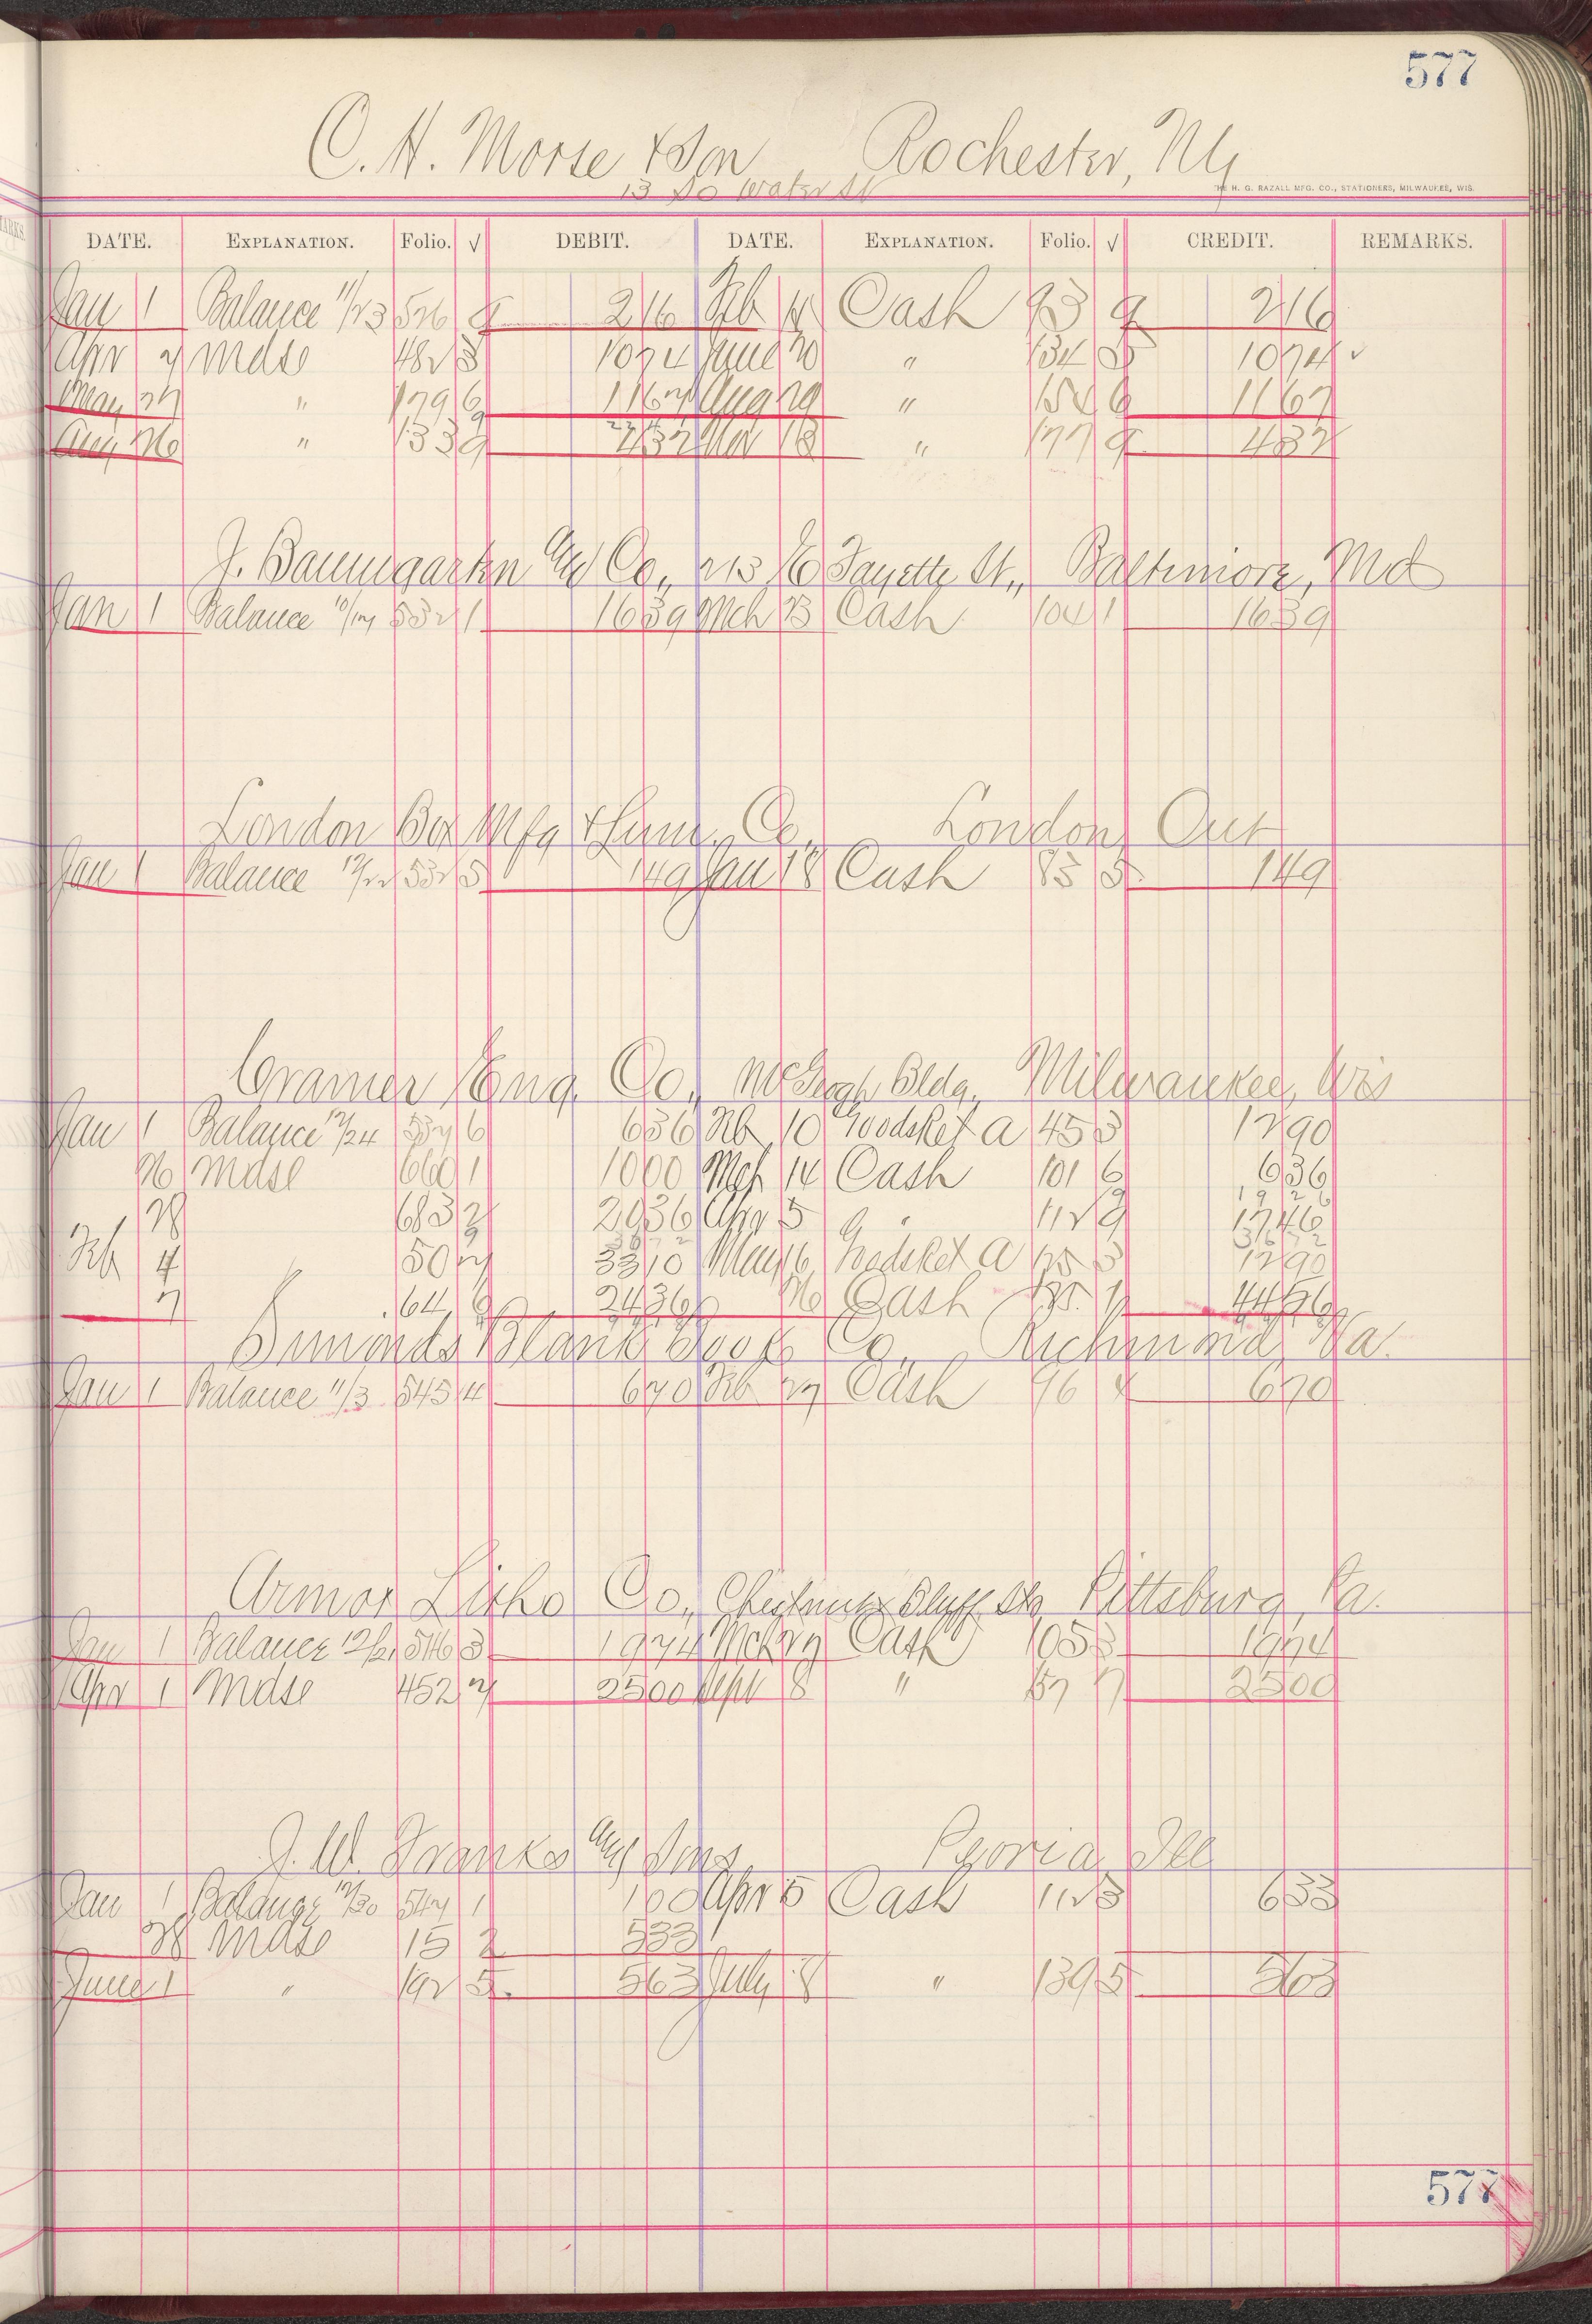 577
C. H. Morse & Son Rochester, NY
13 So Water St
THE H. G. RAZALL MFG. CO., STATIONERS, MILWAUKEE, WIS.
DATE. EXPLANATION. Folio. √ DEBIT. DATE. EXPLANATION. Folio. √ CREDIT. REMARKS.
Jan 1 Balance 11/23 526 9 216 Feb 14 Cash 93 9 216
Apr 7 Mdse 482 3 1074 June 20 " 134 3 1074 ✓
May 27 " 179 6 1167 Aug 29 " 6 1167
Aug 26 " 133 9 437 Nov 18 " 177 9 437
J. Baumgarten & Co., 213 E Fayette St., Baltimore, Md
Jan 1 Balance 532 1 1639 Mch 23 Cash 104 1 1639
London Box Mfg & Lum. Co., London, Ont
Jan 1 Balance 12/22 532 5 149 Jan 18 Cash 83 5 149
Cramer Eng. Co., McGeoch Bldg., Milwaukee, Wis
Jan 1 Balance 12/24 537 6 636 Feb 10 Goodsket A 453 1290
26 Mdse 660 1 1000 Mch 14 Cash 101 6 636
28 683 2 2036 Apr 5 " 112 9 1746
Feb 4 " 50 7 3310 May 6 Goodsket A 1290
7 " 64 2436 26 Cash 4456
Simonds Blank Book Co., Richmond, Va.
Jan 1 Balance 11/3 543 4 670 Feb 27 Cash 96 4 670
Armor Litho Co., Chestnut & Bluff Sts, Pittsburg, Pa.
Jan 1 Balance 12/2 546 3 1974 Mch 29 Cash 105 3 1974
Apr 1 Mdse 452 7 2500 Sept 8 " 157 7 2500
J. W. Franks & Sons Peoria, Ill
Jan 1 Balance 12/30 547 1 100 Apr 5 Cash 112 3 633
28 Mdse 15 2 533
June 1 " 192 5 563 July 8 " 139 5 563
577